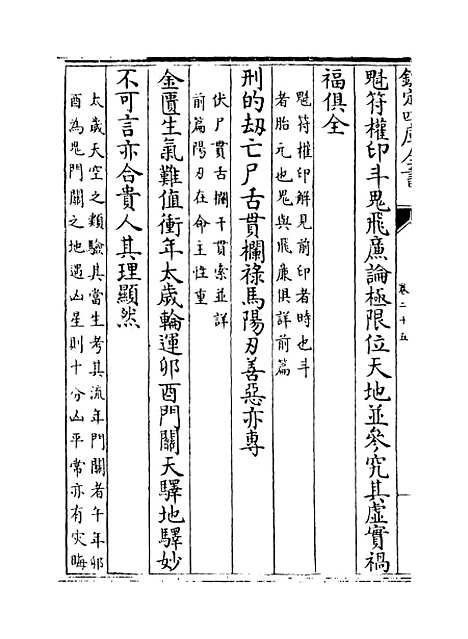 欽定四庫全書
卷二十五
魁符權印斗鬼飛廉論極限位天地並參究其虛實禍
福俱全
魁符權印解見前印者時也斗
者胎元也鬼與飛廉俱詳前篇
刑的刼亡尸舌貫欄祿馬陽刃善惡亦專
伏尸貫舌欄干貫索並詳
前篇陽刃在命主性重
金匱生氣難值衝年太歲輪運卯酉門關天驛地驛妙
不可言亦合貴人其理顯然
太歲天空之類驗其當生考其流年門關者午年卯
酉為鬼門關之地遇凶星則十分凶平常亦有灾晦